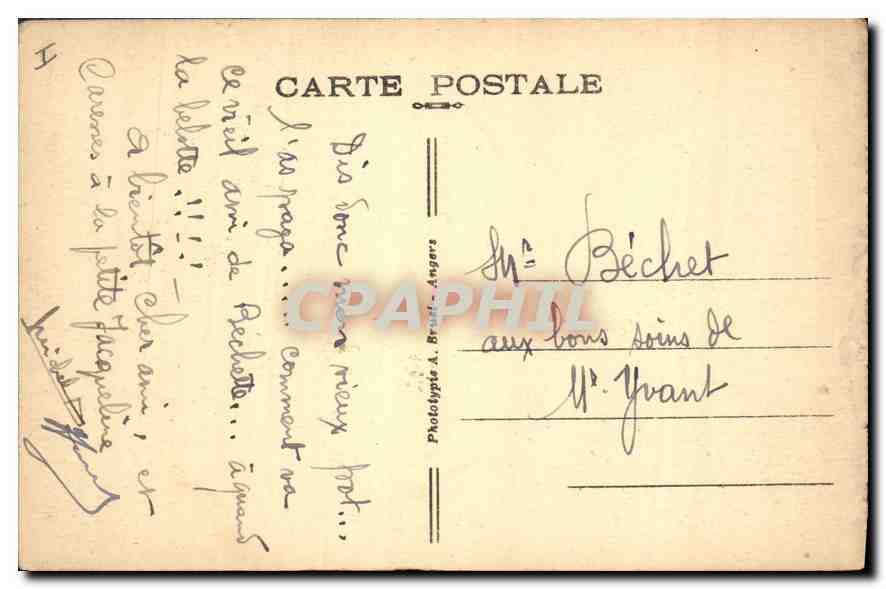 CARTE POSTALE
Dis donc mon vieux
l'as comment va
ce vieil ami de Béchette... à quand
la belotte!!!!
A bientôt cher ami, et
Caresses à la petite Jacqueline
Phototypie A. Bruel - Angers
Mr Béchet
aux bons soins de
Mr. Yvant
CPAPHIL